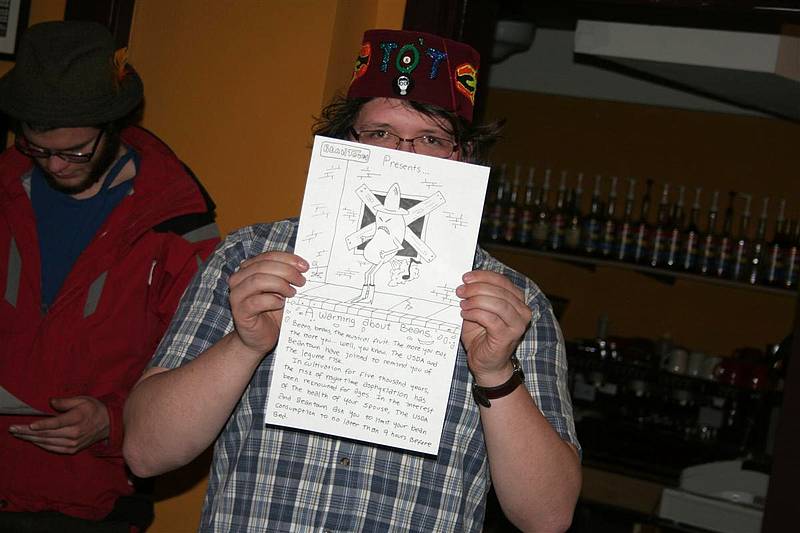 TOT
BEANTOWN
Presents...
A Warning about Beans
Beans, beans, the musical fruit. The more you eat
the more you... well, you know. The USDA and
Beantown have joined to remind you of
the legume risk.
In cultivation for five thousand years,
the risk of nighttime asphyxiation has
been renowned for ages. In the interest
of the health of your spouse, the USDA
and Beantown ask you to limit your bean
consumption to no later than 4 hours before
Bed.